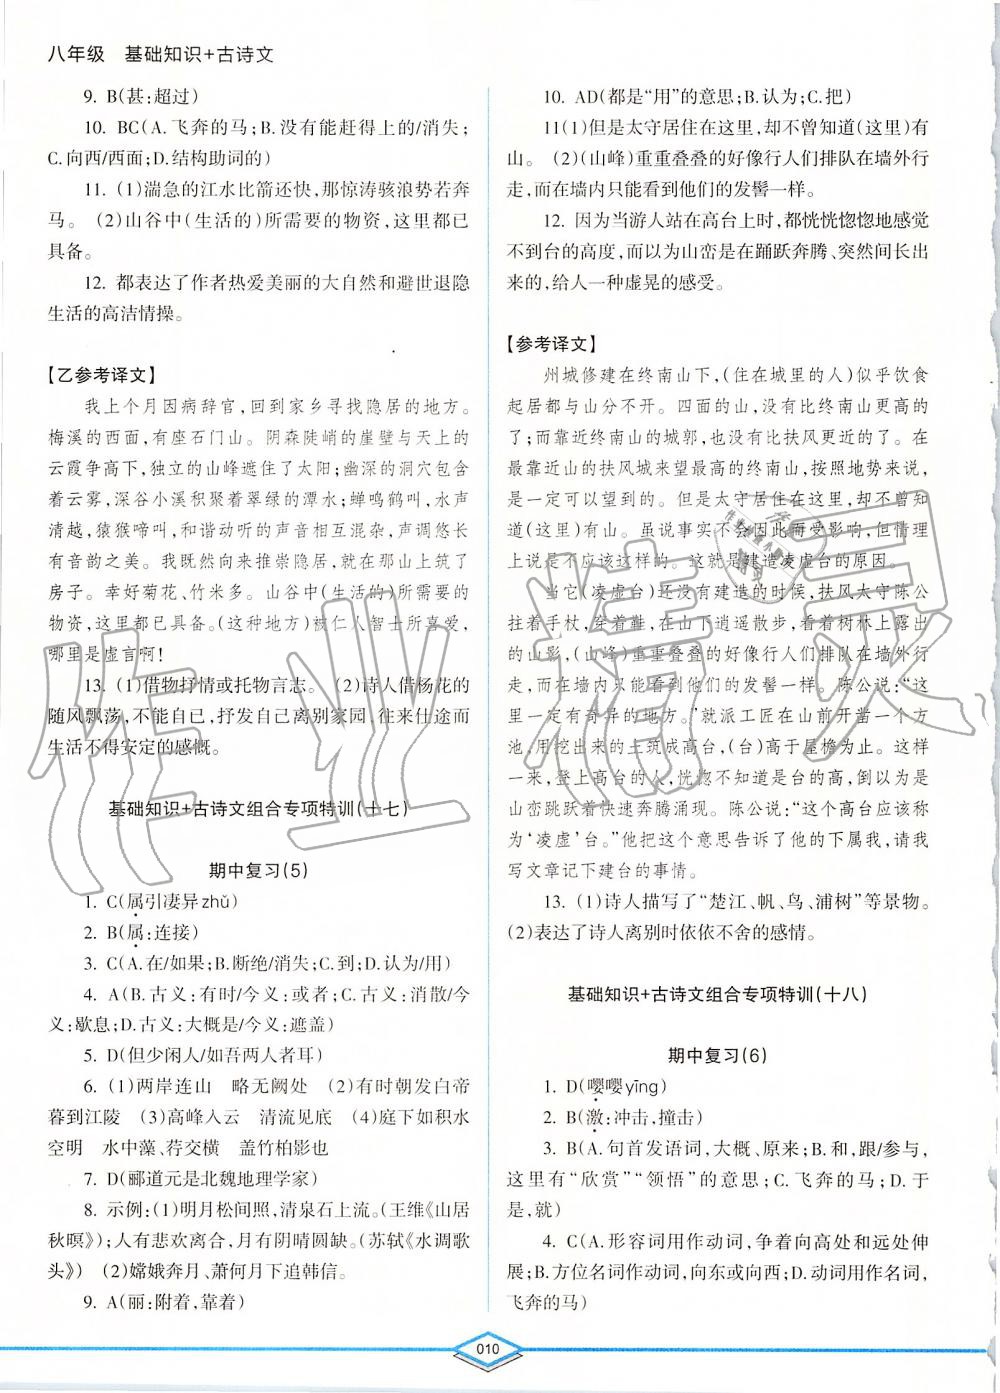 八年级　基础知识+古诗文
9. B(甚:超过)
10. BC(A.飞奔的马;B.没有能赶得上的/消失;
C.向西/西面;D.结构助词的)
11. (1)湍急的江水比箭还快,那惊涛骇浪势若奔
马。　(2)山谷中(生活的)所需要的物资,这里都已
具备。
12. 都表达了作者热爱美丽的大自然和避世退隐
生活的高洁情操。
【乙参考译文】
我上个月因病辞官,回到家乡寻找隐居的地方。
梅溪的西面,有座石门山。阴森陡峭的崖壁与天上的
云霞争高下,独立的山峰遮住了太阳;幽深的洞穴包含
着云雾,深谷小溪积聚着翠绿的潭水;蝉鸣鹤叫,水声
清越,猿猴啼叫,和谐动听的声音相互混杂,声调悠长
有音韵之美。我既然向来推崇隐居,就在那山上筑了
房子。幸好菊花、竹米多。山谷中(生活的)所需要的
物资,这里都已具备。(这种地方)被仁人智士所喜爱,
哪里是虚言啊!
13. (1)借物抒情或托物言志。　(2)诗人借杨花的
随风飘荡,不能自已,抒发自己离别家园,往来仕途而
生活不得安定的感慨。
基础知识+古诗文组合专项特训(十七)
期中复习(5)
1. C(属引凄异zhǔ)
2. B(属:连接)
3. C(A.在/如果;B.断绝/消失;C.到;D.认为/用)
4. A(B.古义:有时/今义:或者;C.古义:消散/今
义:歇息;D.古义:大概是/今义:遮盖)
5. D(但少闲人/如吾两人者耳)
6. (1)两岸连山　略无阙处　(2)有时朝发白帝
暮到江陵　(3)高峰入云　清流见底　(4)庭下如积水
空明　水中藻、荇交横　盖竹柏影也
7. D(郦道元是北魏地理学家)
8. 示例:(1)明月松间照,清泉石上流。(王维《山居
秋暝》);人有悲欢离合,月有阴晴圆缺。(苏轼《水调歌
头》)　(2)嫦娥奔月、萧何月下追韩信。
9. A(丽:附着,靠着)
10. AD(都是“用”的意思;B.认为;C.把)
11(1)但是太守居住在这里,却不曾知道(这里)有
山。　(2)(山峰)重重叠叠的好像行人们排队在墙外行
走,而在墙内只能看到他们的发髻一样。
12. 因为当游人站在高台上时,都恍恍惚惚地感觉
不到台的高度,而以为山峦是在踊跃奔腾、突然间长出
来的,给人一种虚晃的感受。
【参考译文】
州城修建在终南山下,(住在城里的人)似乎饮食
起居都与山分不开。四面的山,没有比终南山更高的
了;而靠近终南山的城郭,也没有比扶风更近的了。在
最靠近山的扶风城来望最高的终南山,按照地势来说,
是一定可以望到的。但是太守居住在这里,却不曾知
道(这里)有山。虽说事实不会因此而受影响,但情理
上说是不应该这样的。这就是建造凌虚台的原因。
当它(凌虚台)还没有建造的时候,扶风太守陈公
拄着手杖,穿着鞋,在山下逍遥散步,看着树林上露出
的山影,(山峰)重重叠叠的好像行人们排队在墙外行
走,而在墙内只能看到他们的发髻一样。陈公说:“这
里一定有奇异的地方。”就派工匠在山前开凿一个方
池,用挖出来的土筑成高台,(台)高于屋檐为止。这样
一来,登上高台的人,恍惚不知道是台的高,却以为是
山峦跳跃着快速奔腾涌现。陈公说:“这个高台应该称
为‘凌虚’台。”他把这个意思告诉了他的下属我,请我
写文章记下建台的事情。
13. (1)诗人描写了“楚江、帆、鸟、浦树”等景物。
(2)表达了诗人离别时依依不舍的感情。
基础知识+古诗文组合专项特训(十八)
期中复习(6)
1. D(嘤嘤yīng)
2. B(激:冲击,撞击)
3. B(A.句首发语词,大概、原来;B.和,跟/参与,
这里有“欣赏”“领悟”的意思;C.飞奔的马;D.于
是,就)
4. C(A.形容词用作动词,争着向高处和远处伸
展;B.方位名词作动词,向东或向西;D.动词用作名词,
飞奔的马)
010
作业精灵